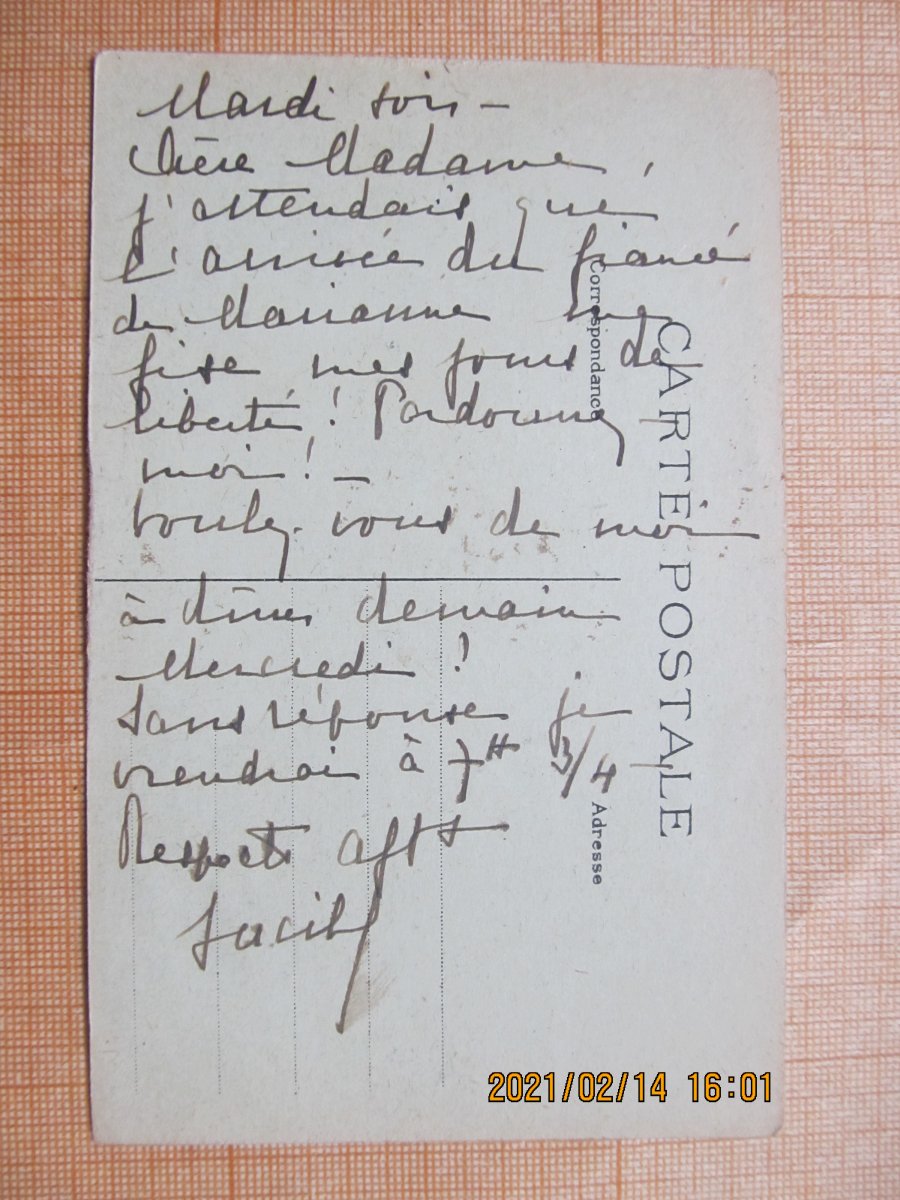 Mardi soir –
Chère Madame,
j'attendais que
l'arrivée du fiancé
de Marianne me
fixe mes jours de
liberté ! Pardonnez
moi ! –
Voulez-vous de moi
à dîner demain
Mercredi !
Sans réponse je
viendrai à 7H 3/4
Respects afts
Lucile
Correspondance
CARTE POSTALE
Adresse
2021/02/14 16:01